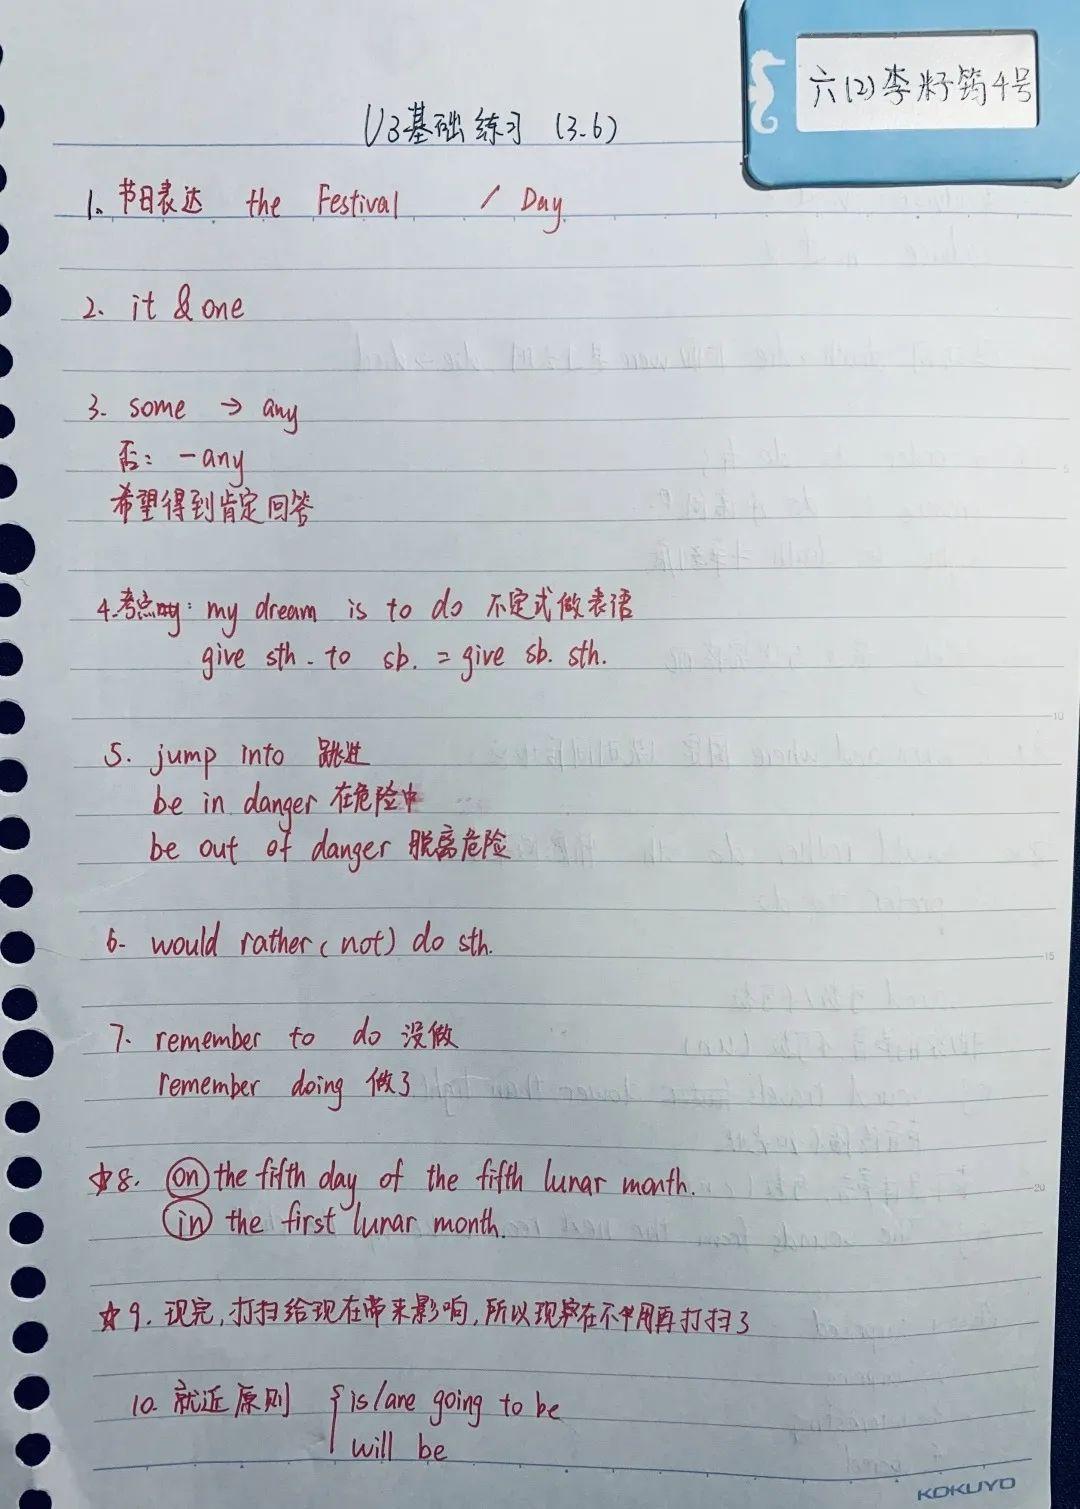 六(2)李籽筠4号
U3基础练习 (3.6)
1. 节日表达 the Festival / Day
2. it & one
3. some → any
否: -any
希望得到肯定回答
4.考点: my dream is to do 不定式做表语
give sth. to sb. = give sb. sth.
5. jump into 跳进
be in danger 在危险中
be out of danger 脱离危险
6. would rather (not) do sth.
7. remember to do 没做
remember doing 做了
☆8. on the fifth day of the fifth lunar month.
in the first lunar month.
☆9. 现完,打扫给现在带来影响,所以现在不用再打扫了
10. 就近原则 { is/are going to be
will be
KOKUYO